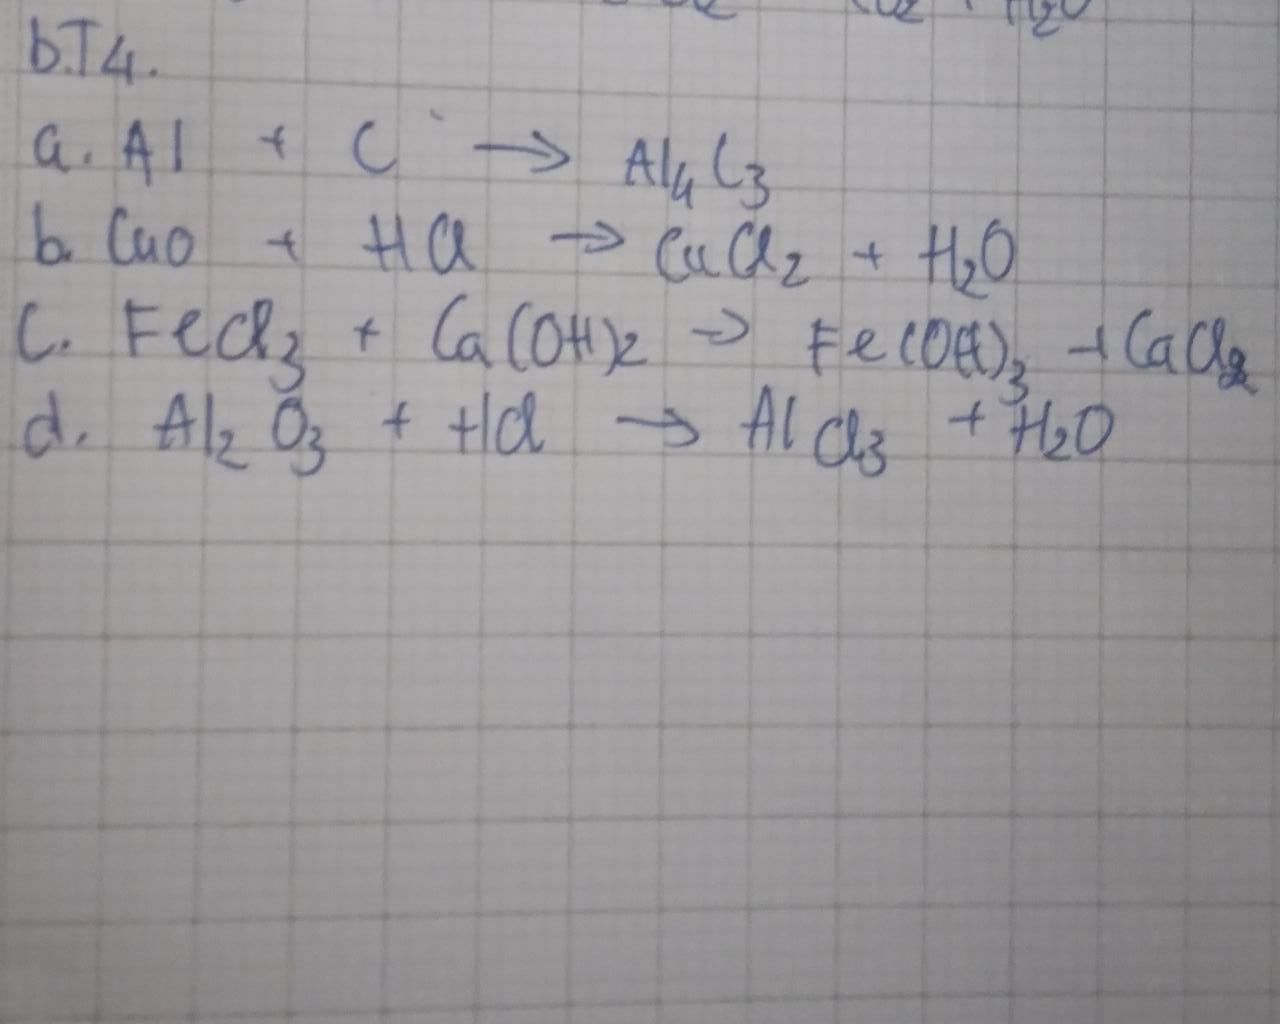 H₂O
b.T4.
a. Al + C → Al₄C₃
b. CuO + HCl → CuCl₂ + H₂O
c. FeCl₃ + Ca(OH)₂ → Fe(OH)₃ + CaCl₂
d. Al₂O₃ + HCl → AlCl₃ + H₂O